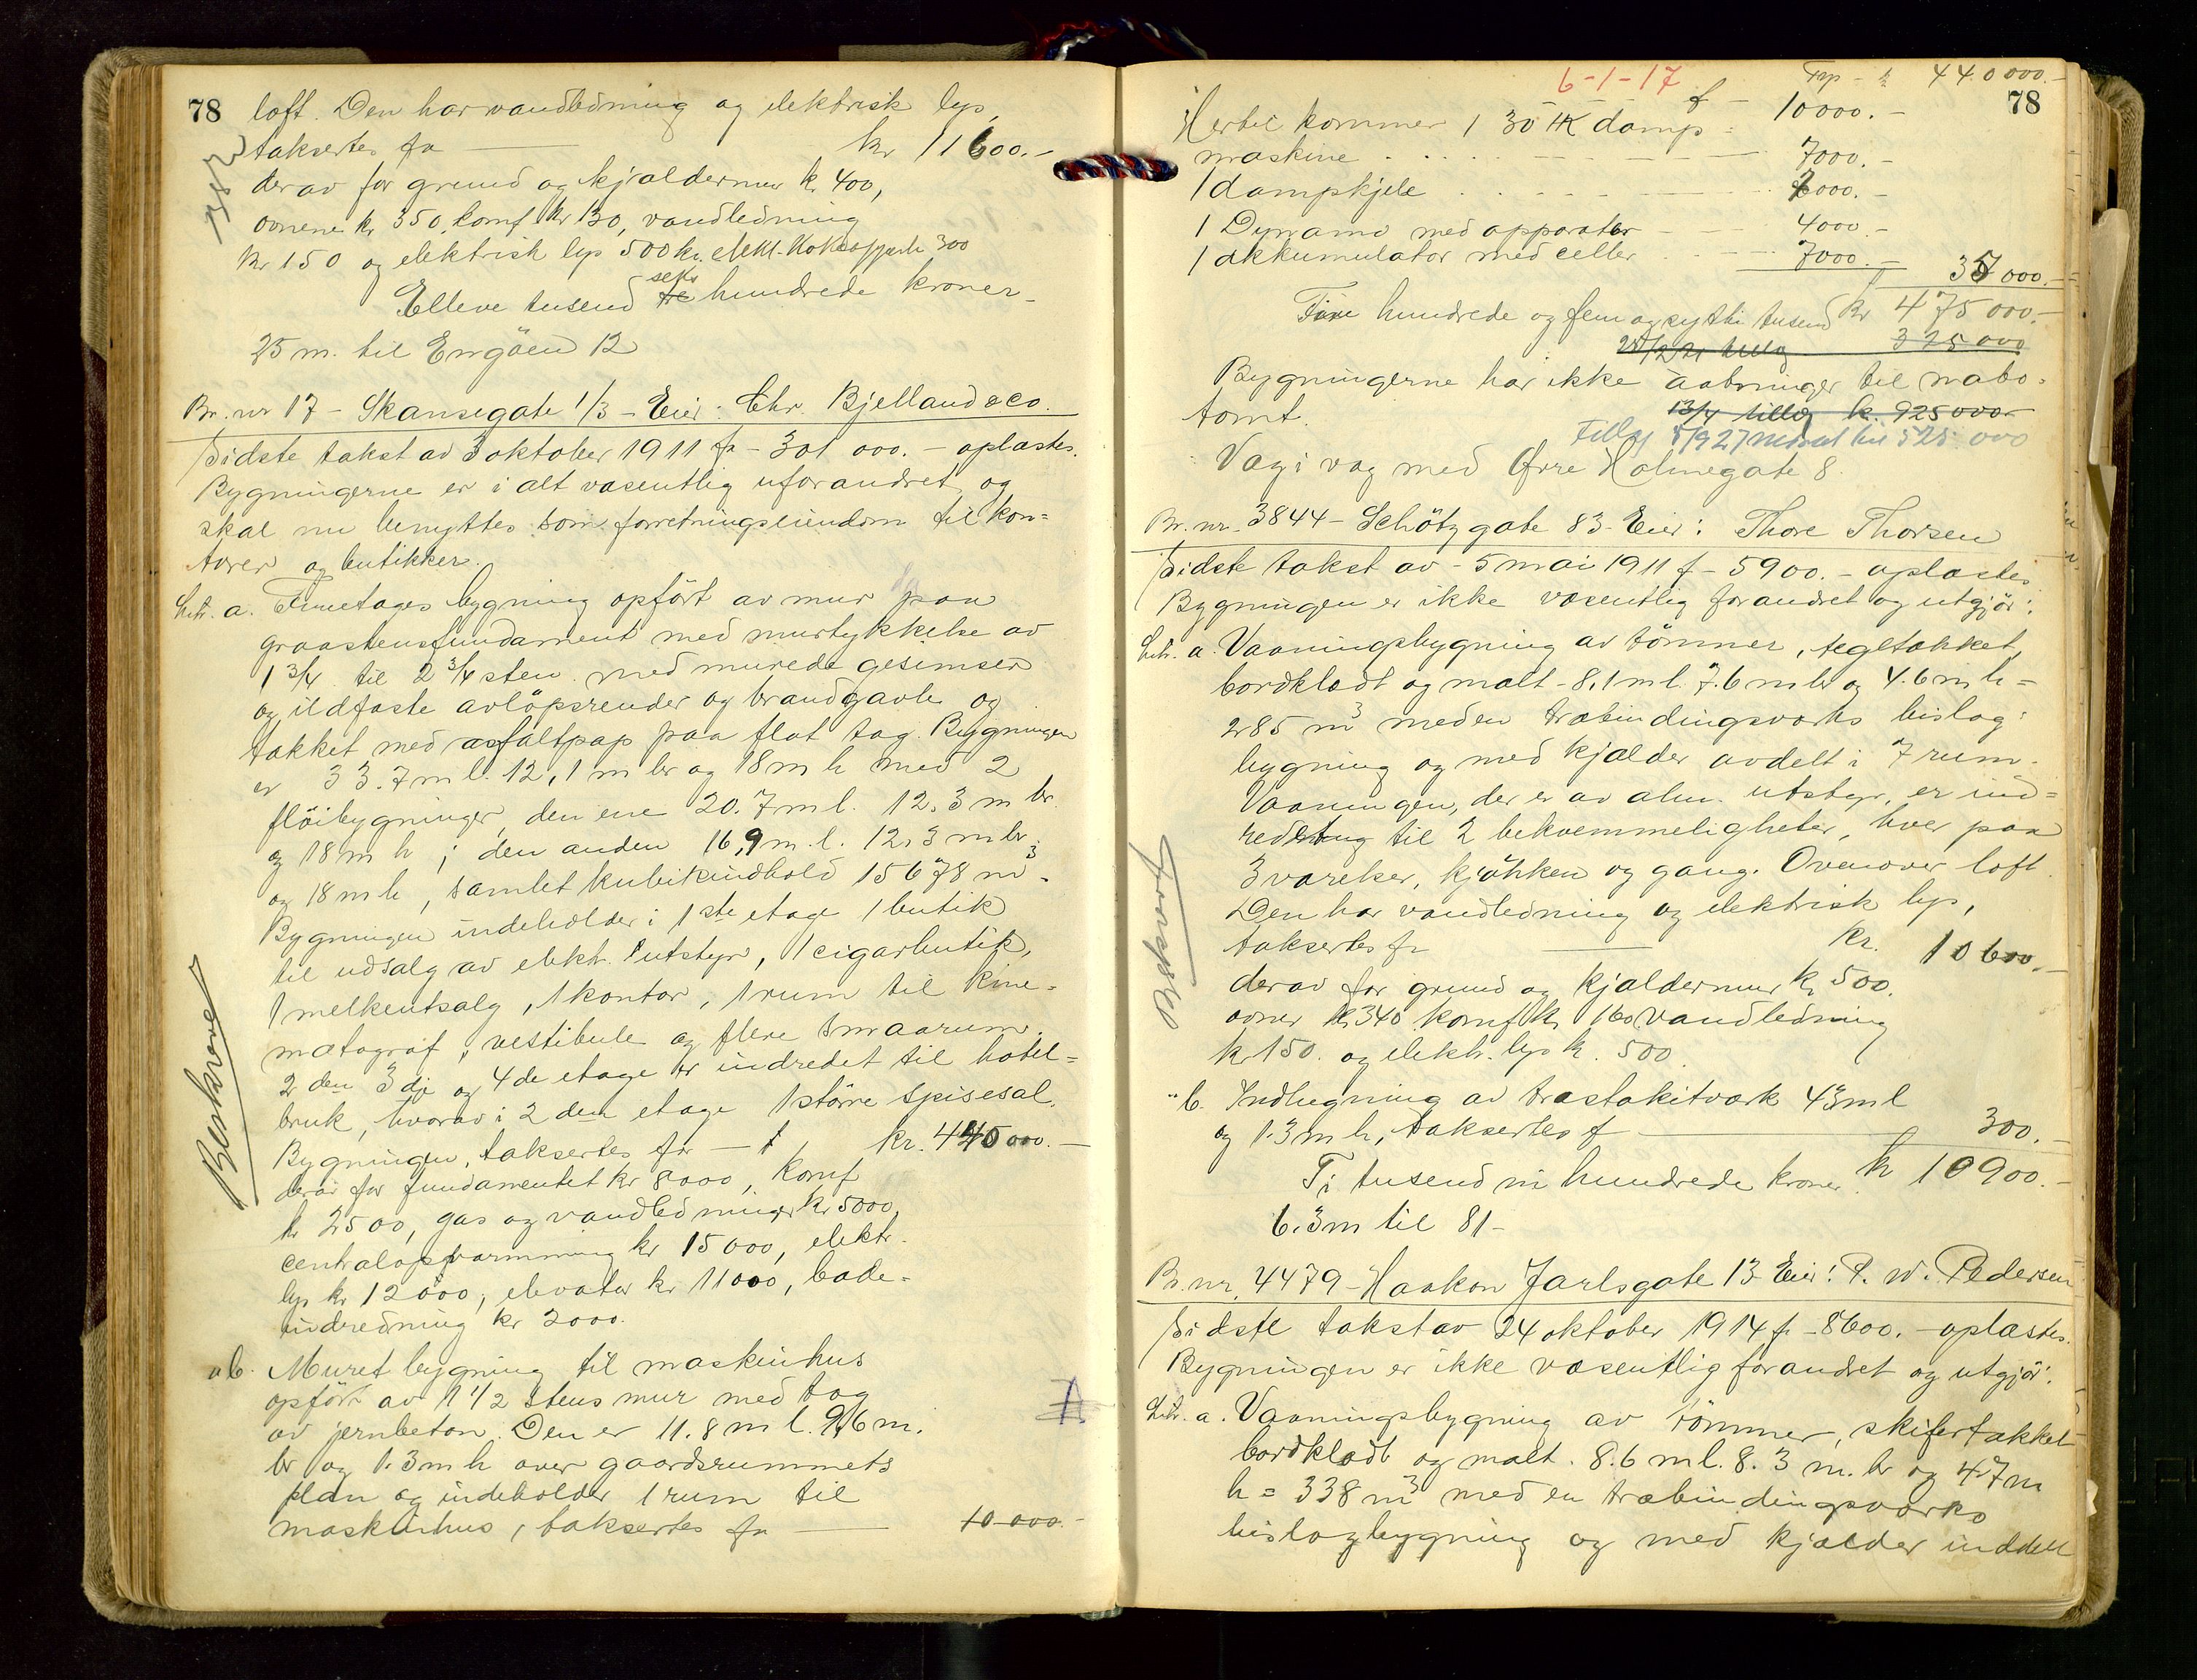 78 loft. Den har vandledning og elektrisk lys,
takseres fr kr 11600.-
derav for grund og kjældermur kr 400,
ovnene kr 350, komf. kr 130, vandledning
kr 150 og elektrisk lys 500 kr. elekt. Kokeapparat 300
Elleve tusend seks hundrede kroner.
25 m. til Engöen 12
Br. nr 17 - Skansegate 1/3 - Eier: Chr. Bjelland & co.
Sidste takst av 3 oktober 1911 fr - 301 000. - oplæstes.
Bygningerne er i alt væsentlig uforandret og
skal nu benyttes som forretningseiendom til kon=
torer og butikker.
Litr. a. Fireetages bygning opfört av mur paa
graastensfundament med murtykkelse av
1 3/4 til 2 3/4 sten med murede gesimser
og ildfaste avlöpsrender og brandgavle og
tækket med asfaltpap paa flat tag. Bygningen
er 33.7 m l. 12,1 m br og 18 m h med 2
flöibygninger, den ene 20.7 m l. 12.3 m br.
og 18 m h ; den anden 16,9 m. l. 12,3 m br.
og 18 m h, samlet kubikindhold 15678 m³.
Bygningen indeholder i 1ste etage 1 butik
til udsalg av elekt. utstyr, 1 cigarbutik,
1 melkeutsalg, 1 kontor, 1 rum til kine=
matograf, vestibule og flere smaarum.
2den 3dje og 4de etage er indredet til hotel=
bruk, hvorav i 2den etage 1 större spisesal.
Bygningen, takseres for - kr. 440 000.-
derav for fundamentet kr 8000, komf
kr 2500, gas og vandledninger kr 5000,
centralopvarmning kr 15000, elektr.
lys kr 12000, elevator kr 11000, bade=
indredning kr 2000.
Beskrevet
" b. Muret bygning til maskinhus
opfört av 1 1/2 stens mur med tag
av jernbeton. Den er 11.8 m l. 9,6 m.
br og 1.3 m h over gaardsrummets
plan og indeholder 1 rum til
maskinhus, takseres fr 10 000.-
6-1-17 Trp - kr 440 000.-
78
f - 10000.-
Hertil kommer 1 30 HK damp=
maskine 7000.-
1 dampkjele 7000.-
1 Dynamo med apparater 4000.-
1 akkumulator med celler 7000.- 35 000.-
Fire hundrede og fem og sytti tusend kr 475 000.-
325 000
Bygningerne har ikke aabninger til nabo=
tomt.
13/4 tillæg kr. 925 000.-
Tillæg 5/9 27 nedsat til 525 000
Væg i væg med Øvre Holmegate 8.
Br. nr. 3844 - Schötz gate 83 - Eier: Thore Thorsen
Sidste takst av - 5 mai 1911 f - 5900. - oplæstes
Bygningen er ikke væsentlig forandret og utgjör:
Litr. a. Vaaningsbygning av tömmer, tegltækket,
bordklædt og malt - 8,1 m l. 7.6 m br og 4.6 m h =
285 m³ med en træbindingsværks bislag=
bygning og med kjælder avdelt i 7 rum.
Vaaningen, der er av alm. utstyr, er ind=
redet til 2 bekvemmeligheter, hver paa
3 værelser, kjökken og gang. Ovenover loft.
Den har vandledning og elektrisk lys,
takseres fr kr. 10 600.-
derav for grund og kjældermur kr 500.
ovner kr 340 komf kr 160 vandledning
kr 150. og elektr. lys kr. 500
" b. Indhegning av træstakitværk 43 m l
og 1.3 m h, takseres f 300.-
Ti tusend ni hundrede kroner kr 10 900.-
6.3 m til 81 -
Br. nr. 4479 - Haakon Jarlsgate 13 - Eier: P. W. Pedersen
Sidste takst av 24 oktober 1914 fr - 8600. - oplæstes.
Bygningen er ikke væsentlig forandret og utgjör:
Litr. a. Vaaningsbygning av tömmer, skifertækket
bordklædt og malt. 8.6 m l. 8.3 m. br og 4.7 m
h = 338 m³ med en træbindingsværks
bislagbygning og med kjælder inddelt